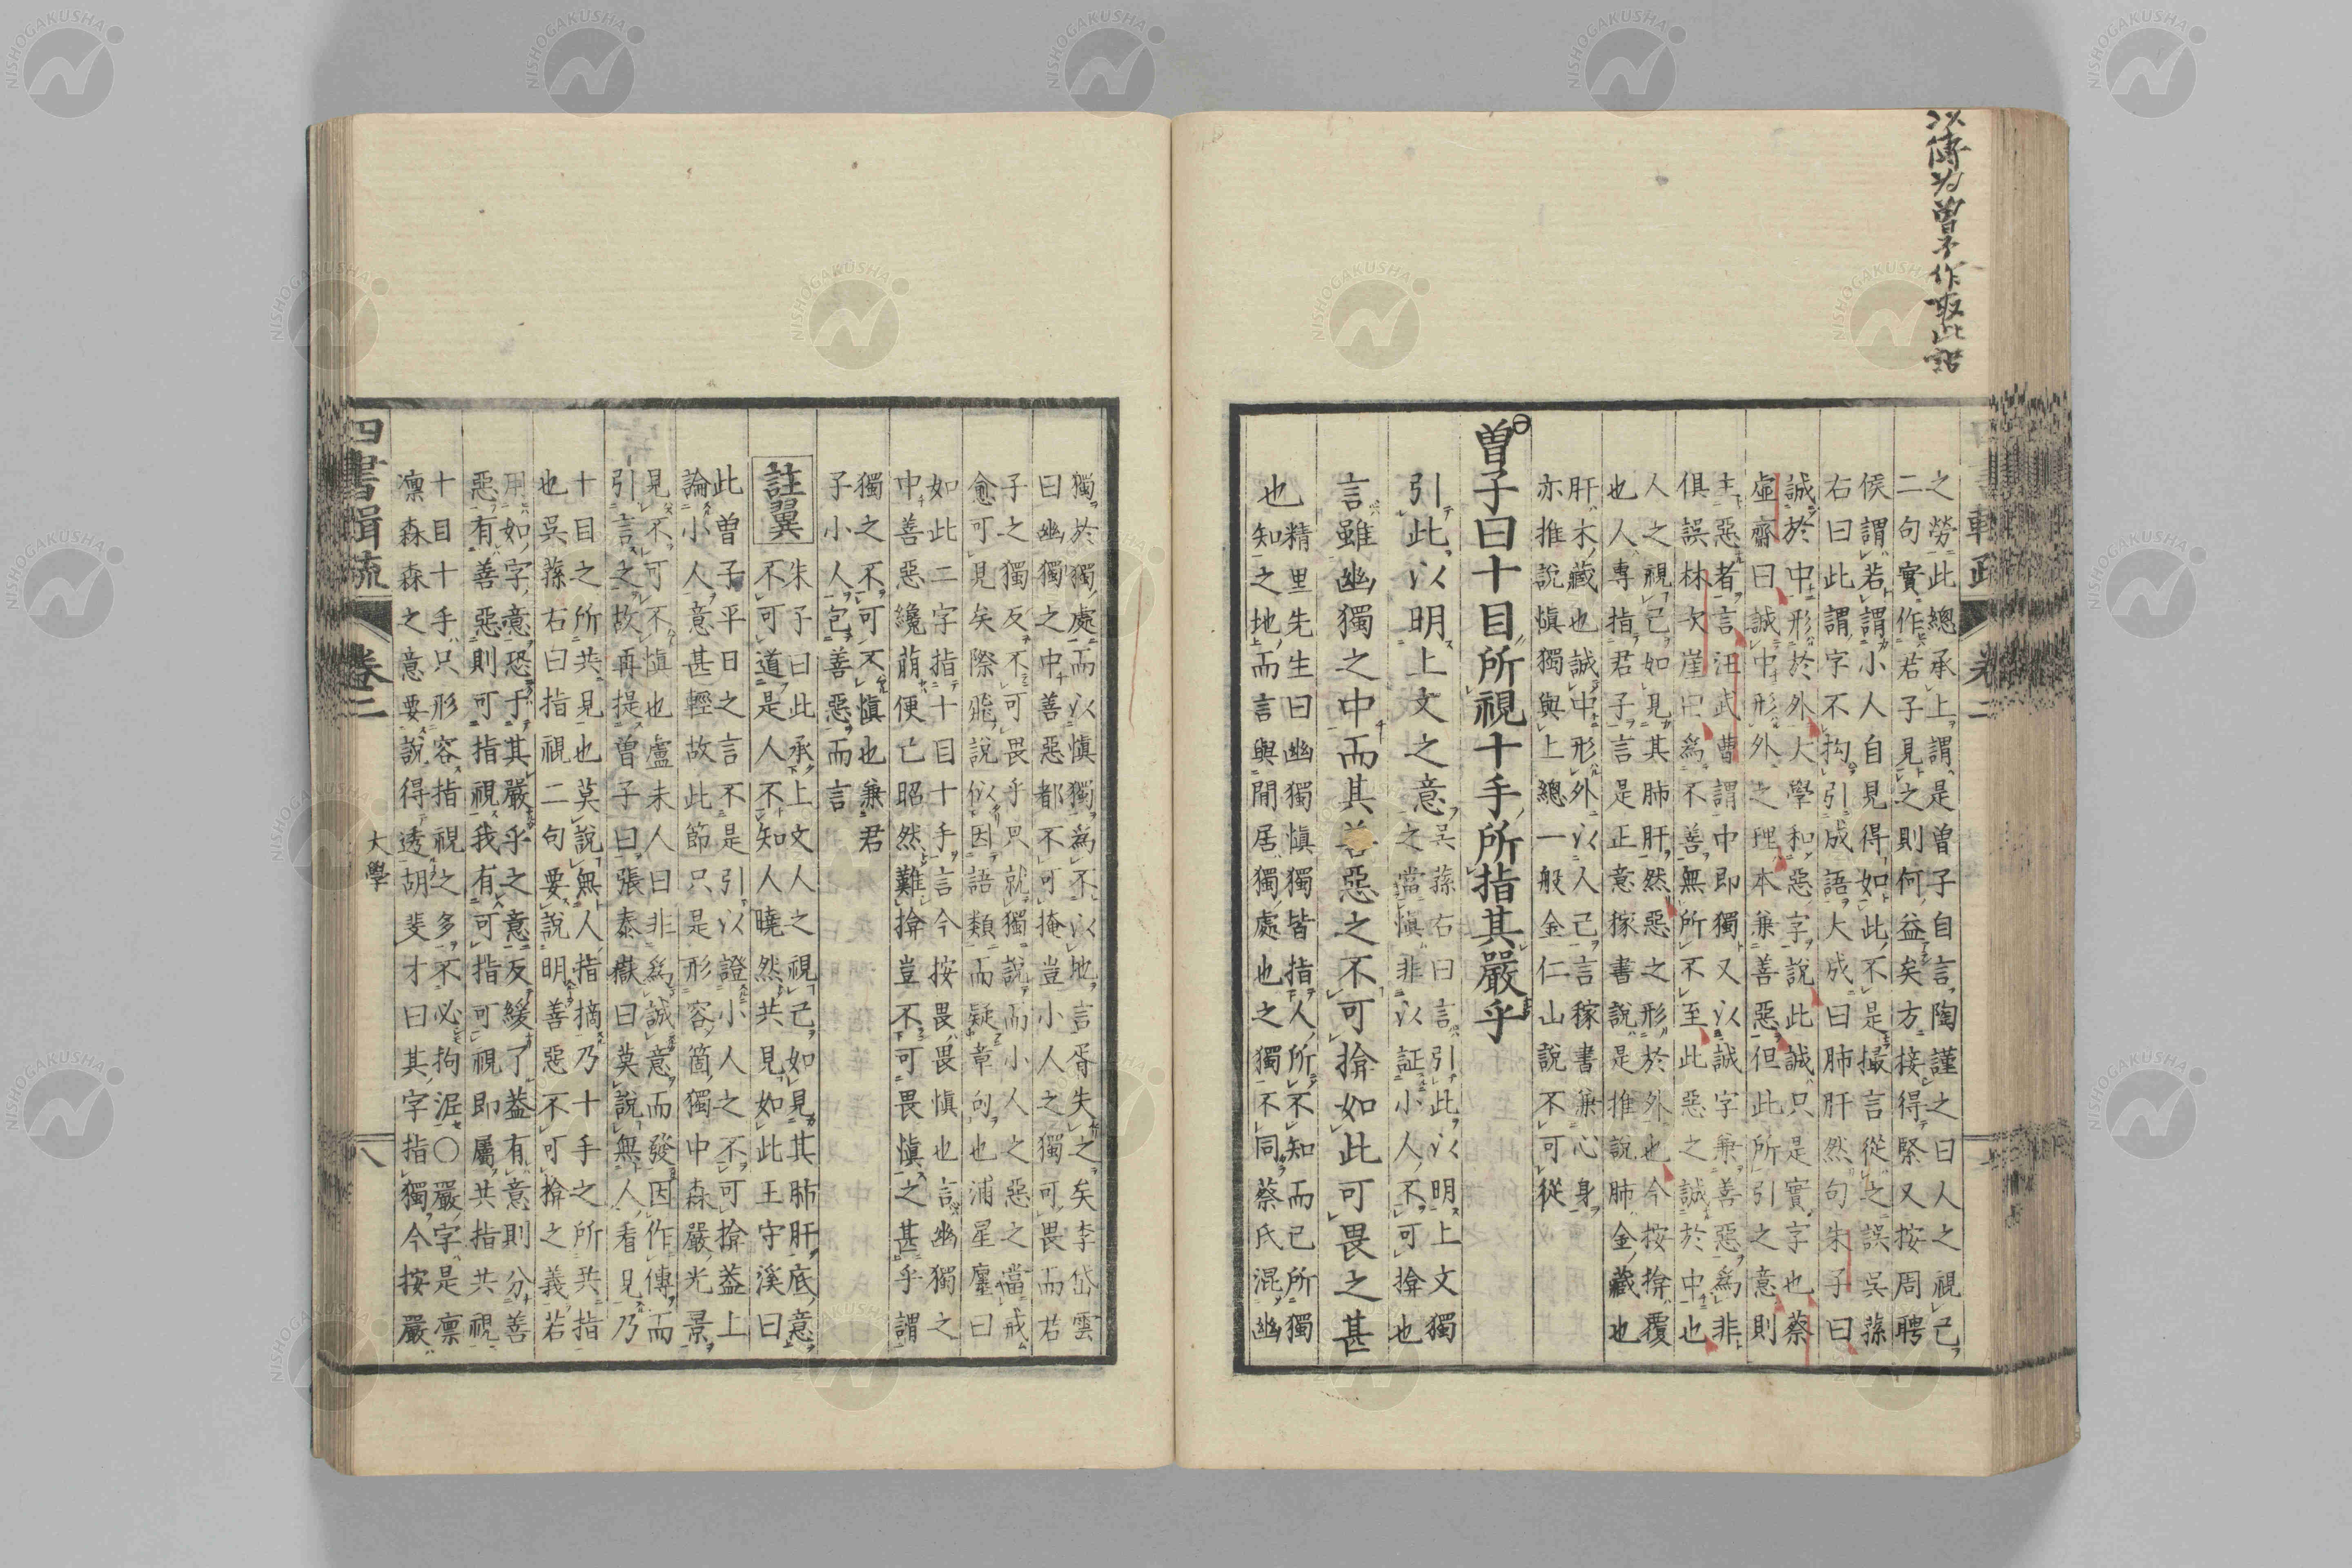 之勞此總承上謂是曽子自言陶謹之曰人之視己
二句實作君子見之則何益矣方接得緊又按周聘
侯謂若謂小人自見得如此不是撮言從之誤吳蓀
右曰此謂字不拘引成語大成曰肺肝然句朱子曰
誠於中形於外大學和惡字說此誠只是實字也蔡
虛齋曰誠中形外之理本兼善惡但此所引之意則
主惡者言汪武曹謂中即獨又以誠字兼善惡爲非
俱誤林次崖曰爲不善無所不至此惡之誠於中也
人之視己如見其肺肝然惡之形於外也今按揜覆
也人專指君子言是正意稼書說是推說肺金藏也
肝木藏也誠中形外以人己言稼書兼心身
亦推說愼獨與上總一般金仁山說不可從
曽子曰十目所視十手所指其嚴乎
引此以明上文之意
吳蓀右曰言引此以明上文獨
之當愼非以証小人不可揜也
言雖幽獨之中而其善惡之不可揜如此可畏之甚
也
精里先生曰幽獨愼獨皆指人所不知而已所獨
知之地而言與閒居獨處也之獨不同蔡氏混幽
獨於獨處而以愼獨爲不以地言胥失之矣李岱雲
曰幽獨之中善惡都不可掩豈小人之獨可畏而君
子之獨反不可畏乎只就獨說而小人之惡之當戒
愈可見矣際飛說似因語類而疑章句也浦星廛曰
如此二字指十目十手言今按畏畏愼也言幽獨之
中善惡纔萠便已昭然難揜豈不可畏愼之甚乎謂
獨之不可不愼也兼君
子小人包善惡而言
註翼
朱子曰此承上文人之視己如見其肺肝底意
不可道是人不知人曉然共見如此王守溪曰
此曽子平日之言不是引以證小人之不可揜葢上
論小人意甚輕故此節只是形容箇獨中森嚴光景
見不可不愼也盧未人曰非爲誠意而發因作傳而
引言之故再提曽子曰張泰嶽曰莫說無人看見乃
十目之所共見也莫說無人指摘乃十手之所共指
也吳蓀右曰指視二句要說明善惡不可揜之義若
用如字意恐于其嚴乎之意反緩了葢有意則分善
惡有善惡則可指視我有可指可視即屬共指共視
十目十手只形容指視之多不必拘泥〇嚴字是凛
凛森森之意要說得透胡斐才曰其字指獨今按嚴
四書輯疏 卷二 大學 八
以傳為曽子作取此語